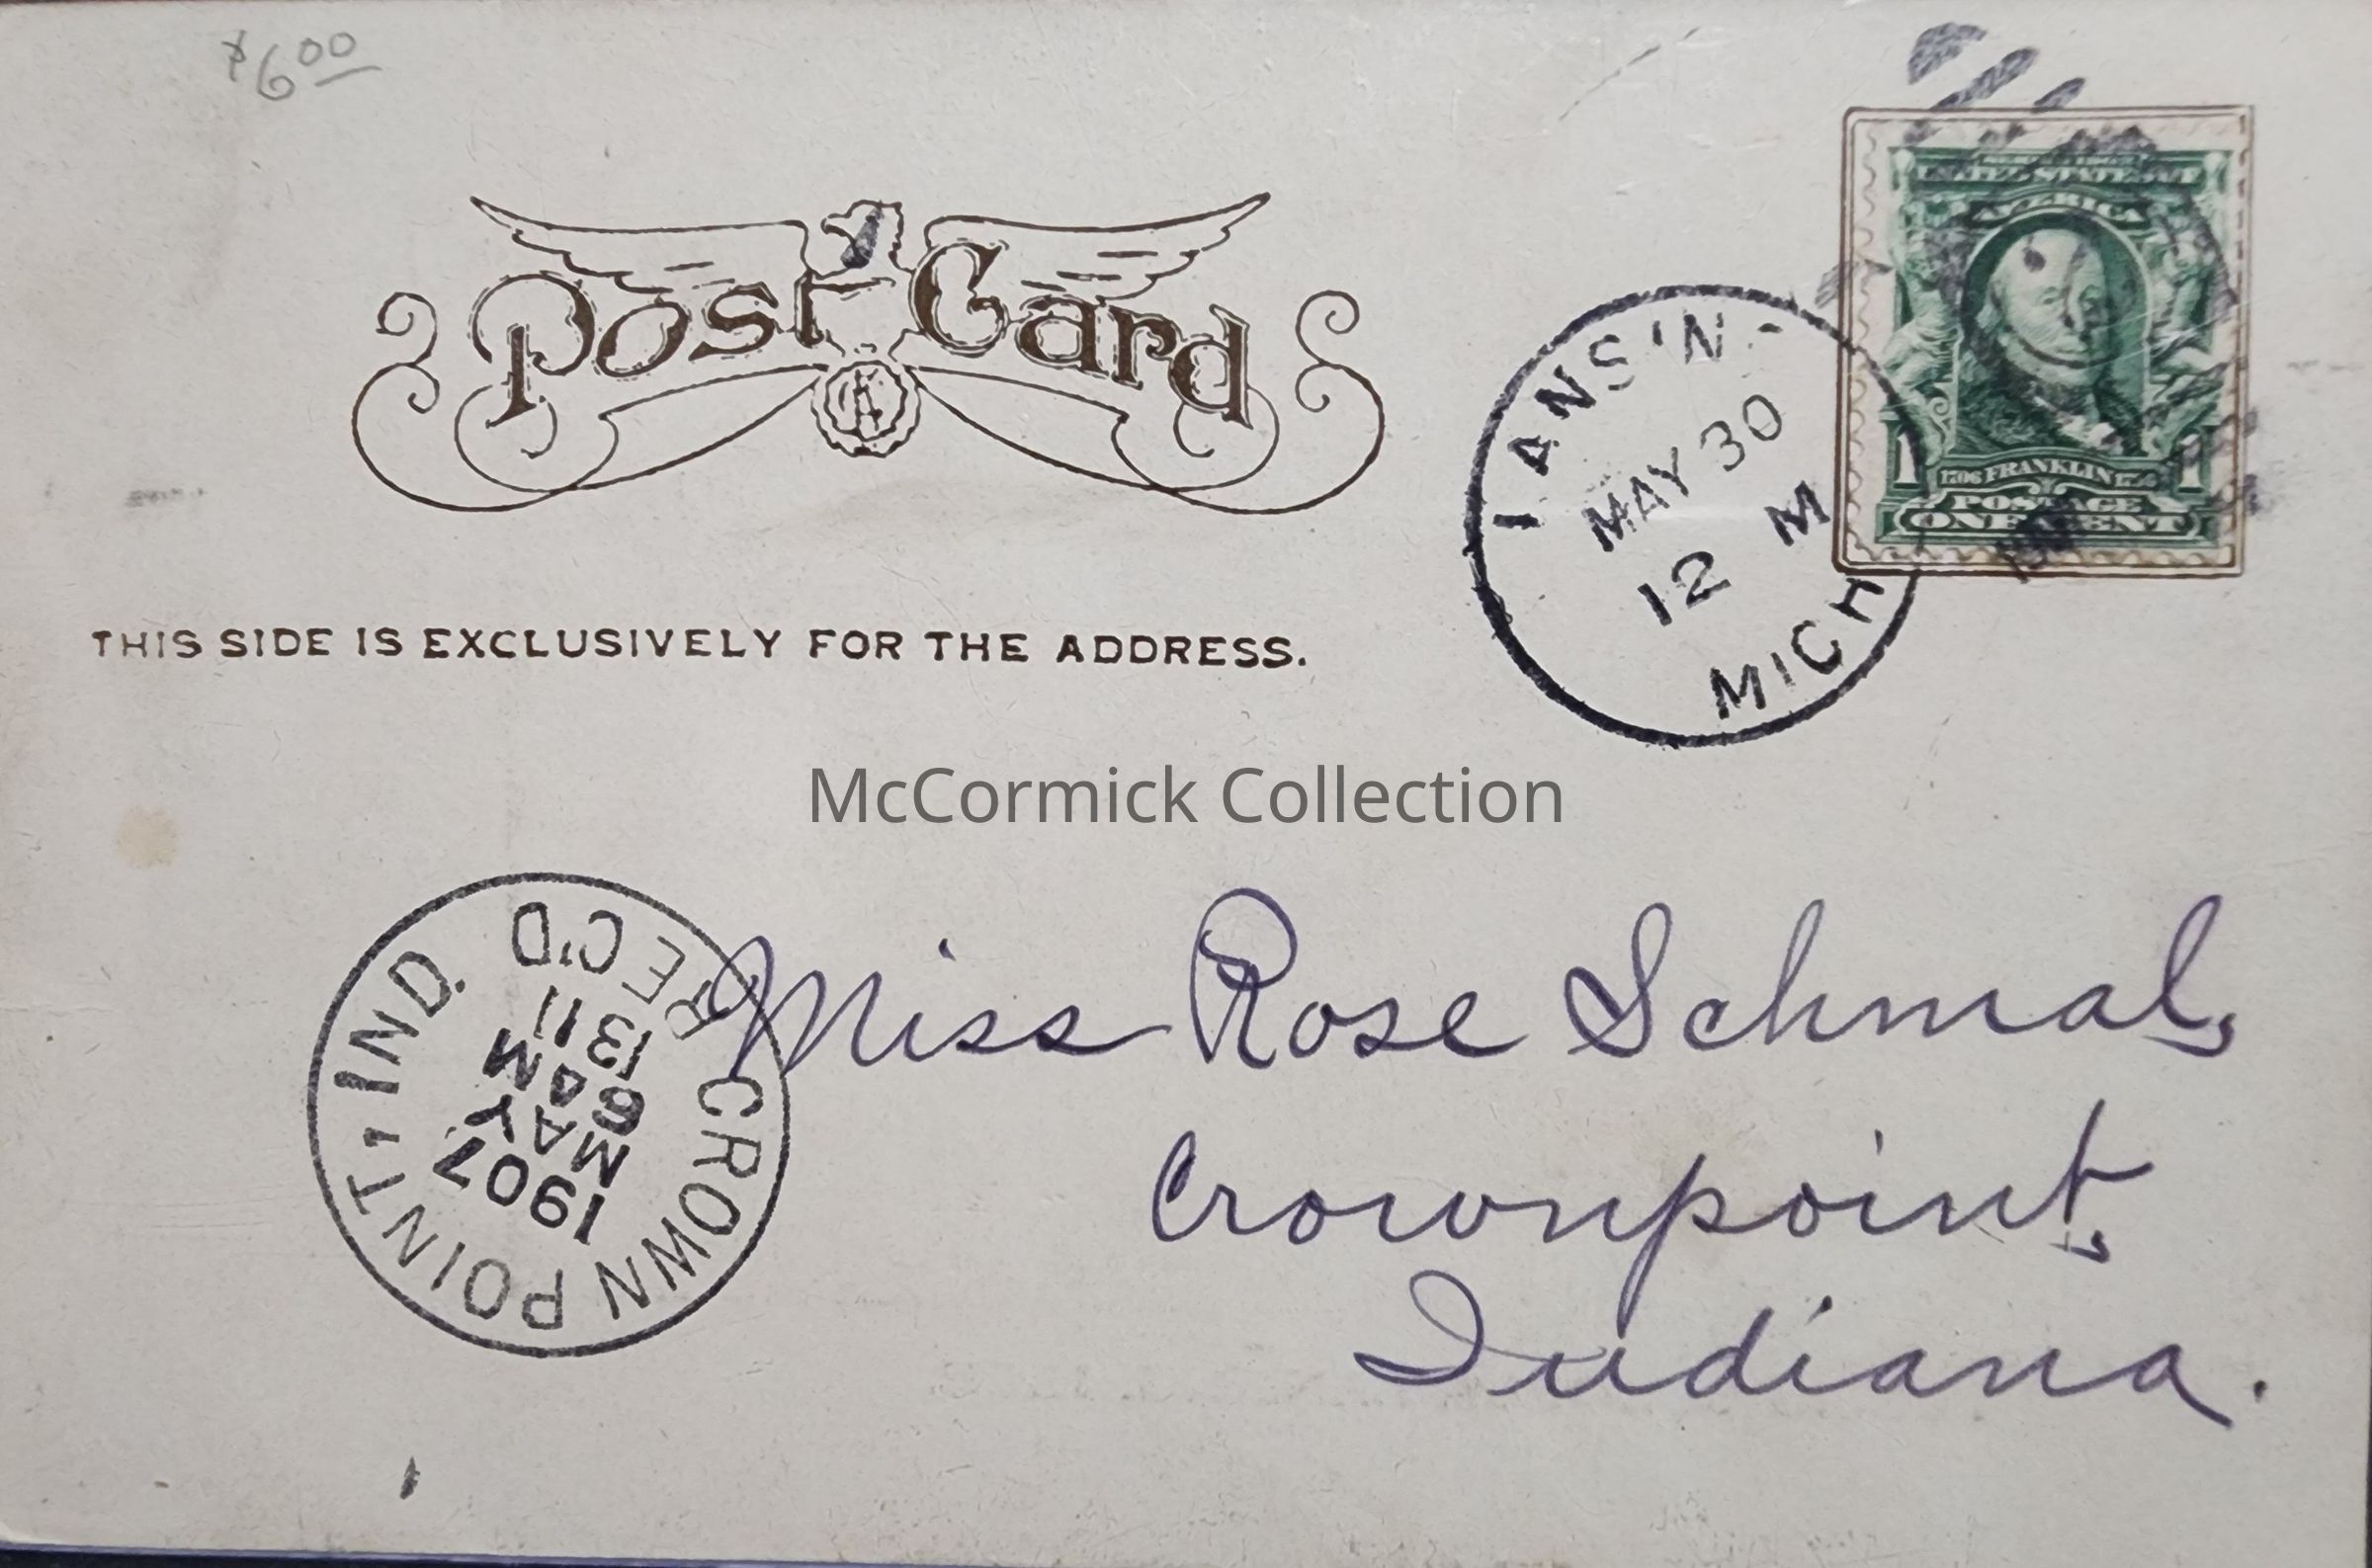 $6.00
Post Card
SERIES 1902
UNITED STATES OF
AMERICA
1706 FRANKLIN 1790
1 1
POSTAGE
ONE CENT
IANS'N-
MAY 30
12 M
MICH
THIS SIDE IS EXCLUSIVELY FOR THE ADDRESS.
McCormick Collection
CROWN POINT, IND.
REC'D
1907
MAY
AM
31
11
Miss Rose Schmal,
Crownpoint,
Indiana.